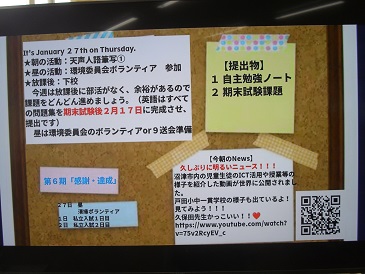 It's January 27th on Thursday.
★朝の活動:天声人語筆写①
★昼の活動:環境委員会ボランティア 参加
★放課後:下校
今週は放課後に部活がなく、余裕があるので
課題をどんどん進めましょう。(英語はすべて
の問題集を期末試験後2月17日に完成させ、
提出です)
昼は環境委員会のボランティアor9送会準備
【提出物】
1 自主勉強ノート
2 期末試験課題
【今朝のNews】
久しぶりに明るいニュース!!!
沼津市内の児童生徒のICT活用や授業等の
様子を紹介した動画が世界に公開されまし
た。
戸田小中一貫学校の様子も出ているよ!
見てみよう!!!!
久保田先生かっこいい!!❤
https://www.youtube.com/watch?
v=75v2RcyEV_c
第6期「感謝・達成」
27日 昼
清掃ボランティア
1日 私立入試1日目
2日 私立入試2日目